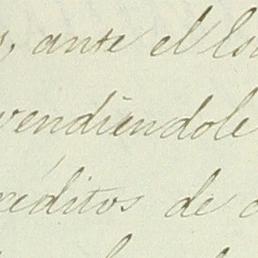 , ante el Es
vendiendole
réditos de